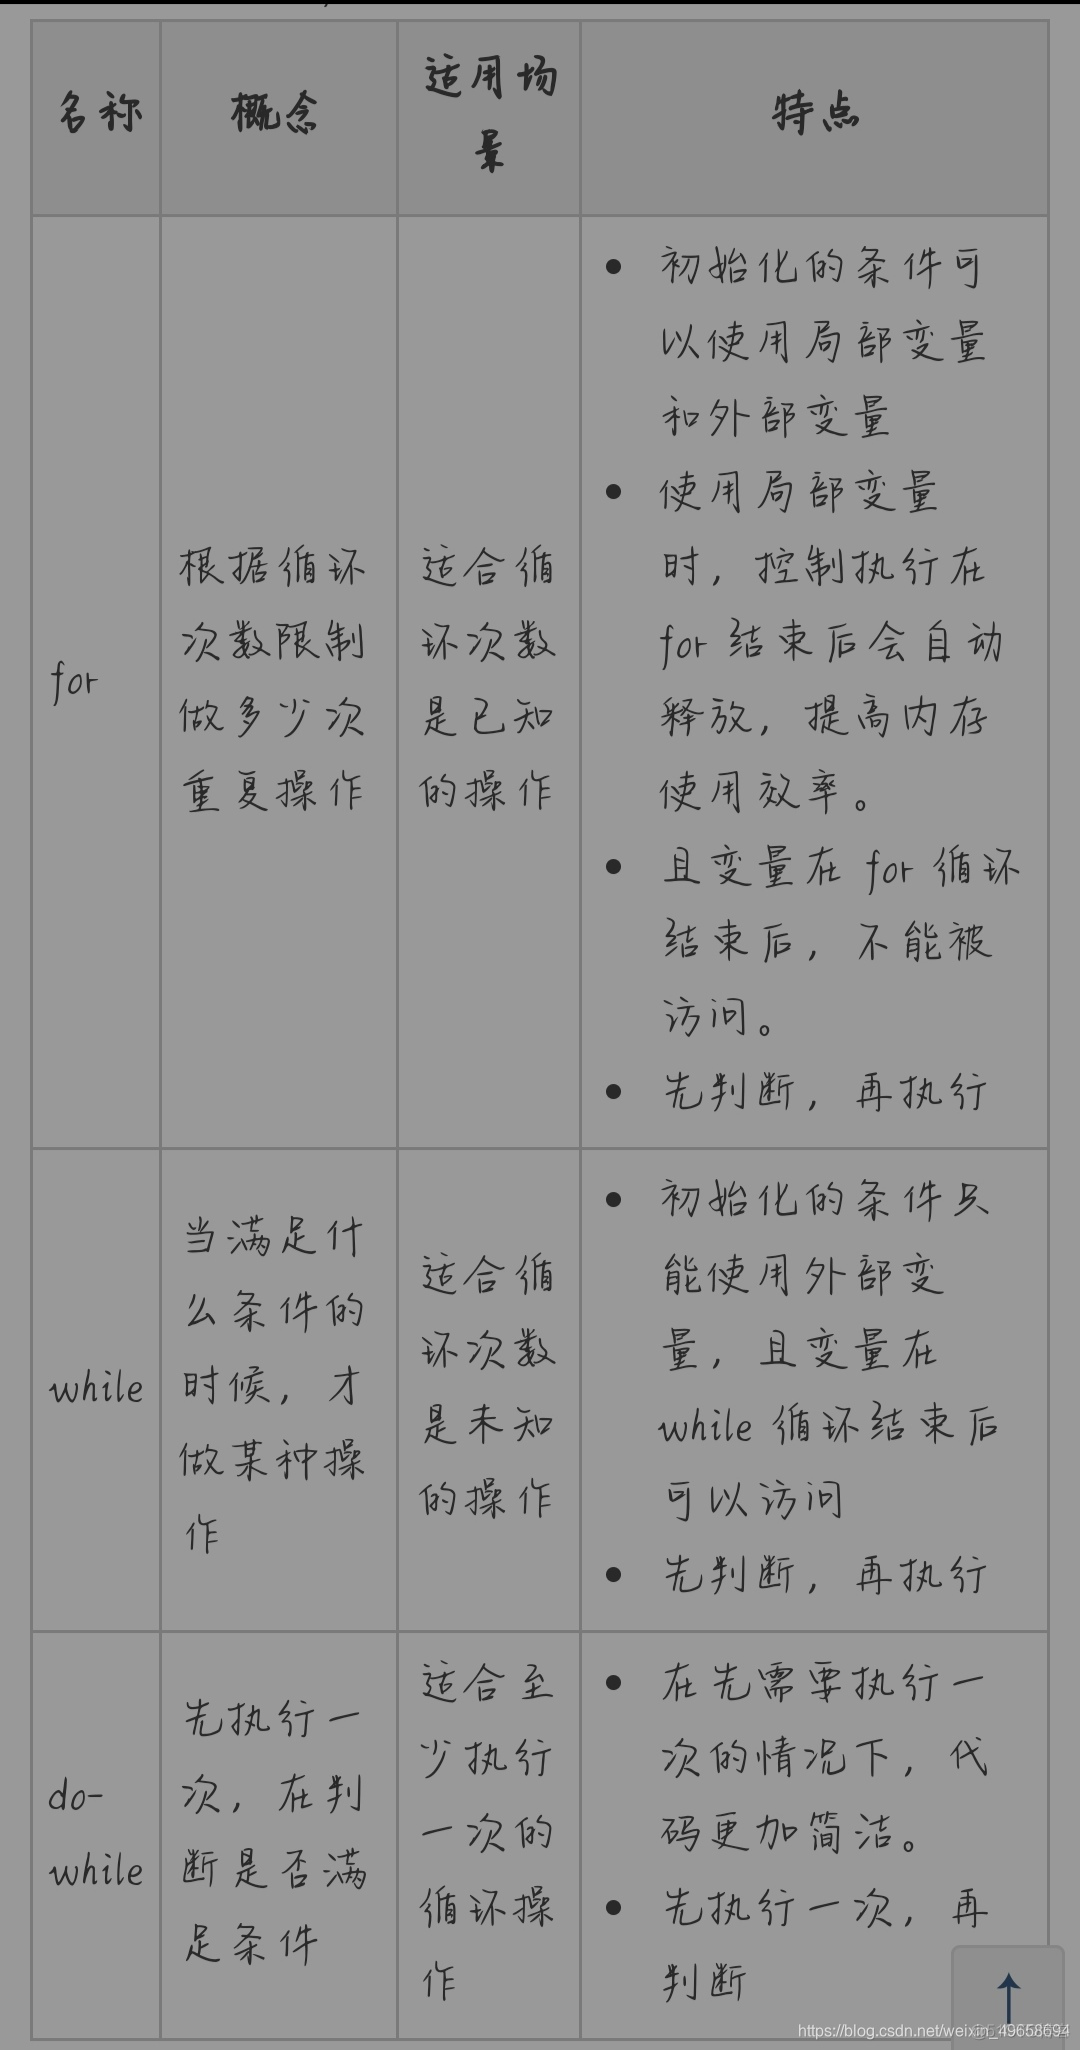 名称
概念
适用场
景
特点
for
根据循环
次数限制
做多少次
重复操作
适合循
环次数
是已知
的操作
初始化的条件可
以使用局部变量
和外部变量
使用局部变量
时，控制执行在
for 结束后会自动
释放，提高内存
使用效率。
且变量在 for 循环
结束后，不能被
访问。
先判断，再执行
while
当满足什
么条件的
时候，才
做某种操
作
适合循
环次数
是未知
的操作
初始化的条件只
能使用外部变
量，且变量在
while 循环结束后
可以访问
先判断，再执行
do-
while
先执行一
次，在判
断是否满
足条件
适合至
少执行
一次的
循环操
作
在先需要执行一
次的情况下，代
码更加简洁。
先执行一次，再
判断
https://blog.csdn.net/weixin_49658694